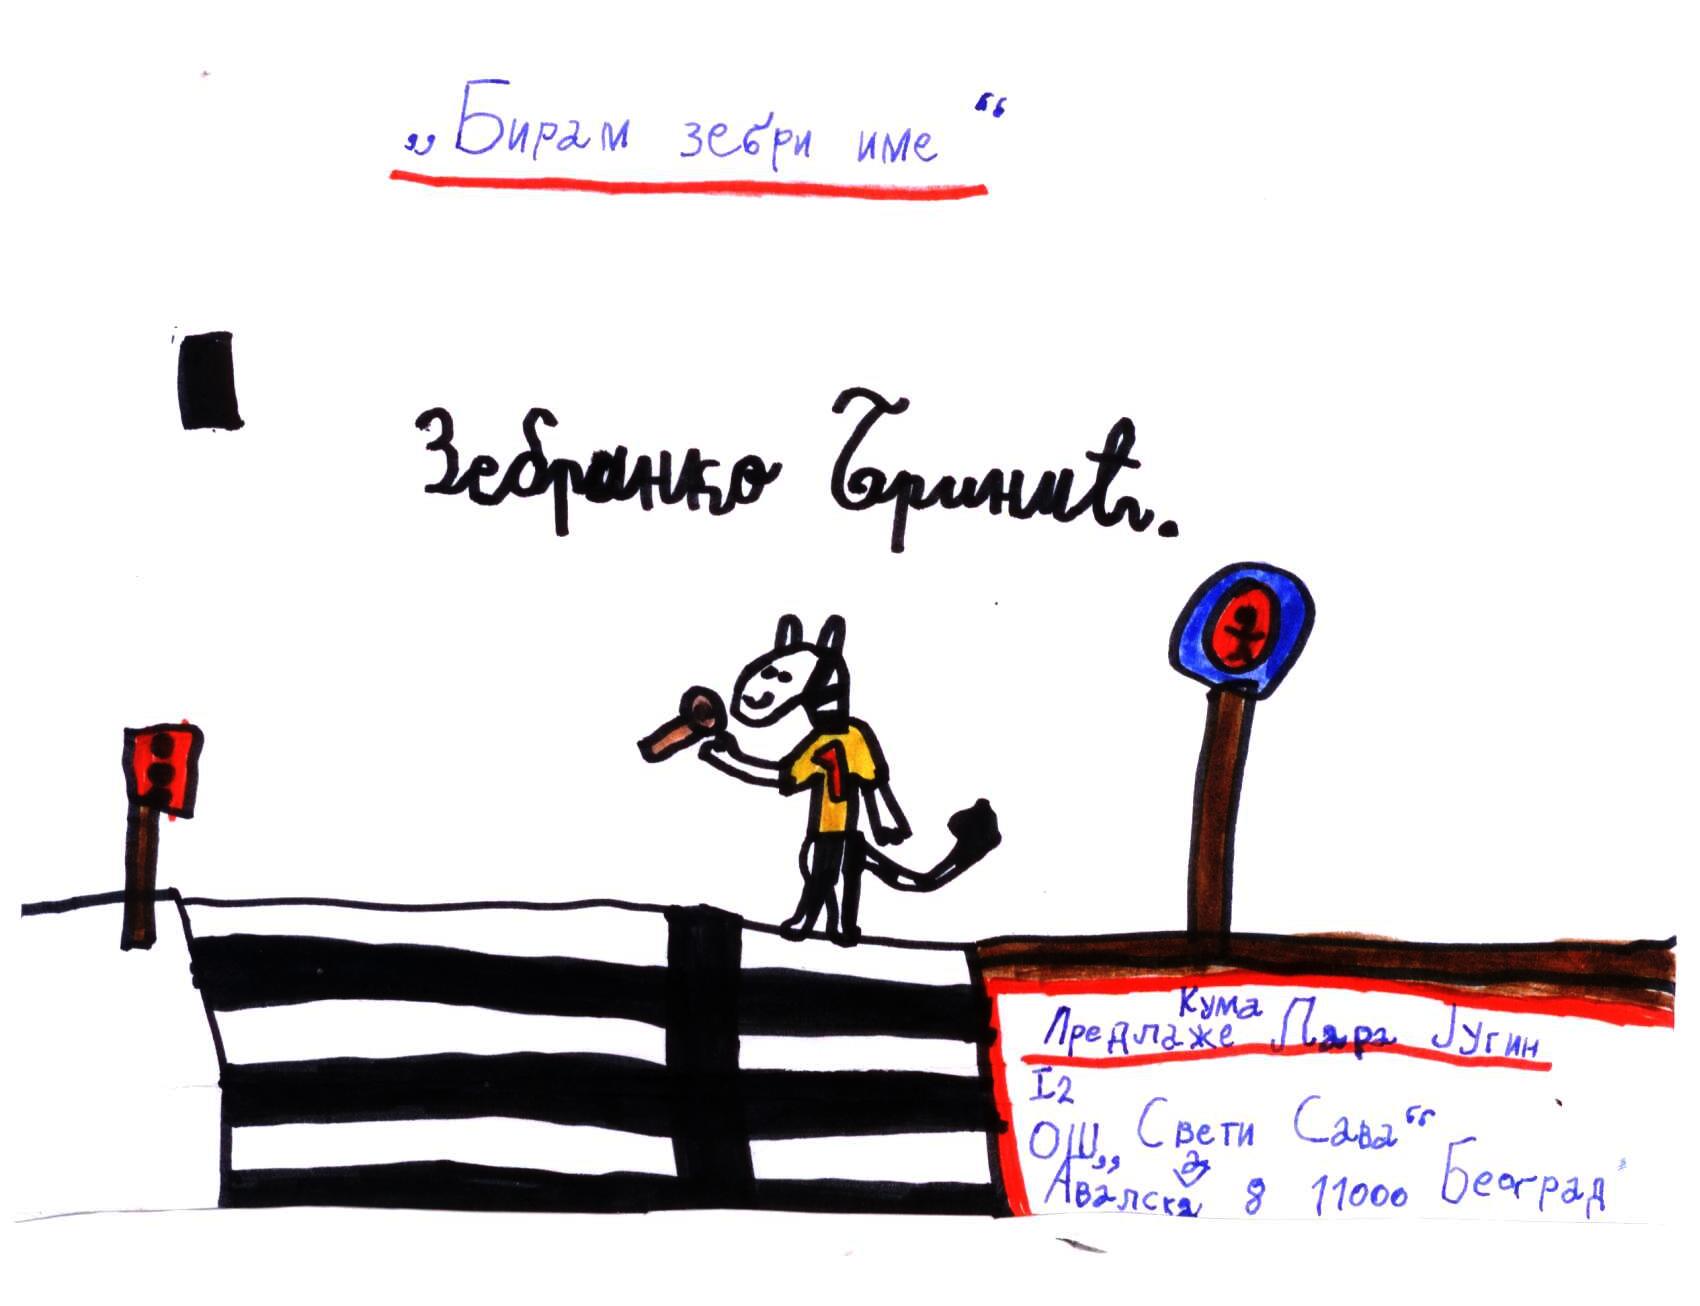 „Бирам зебри име“
Зебранко Бринић.
1
Предлаже Кума Лара Југин
I2
ОШ „Свети Сава“
Авалска 8 11000 Београд